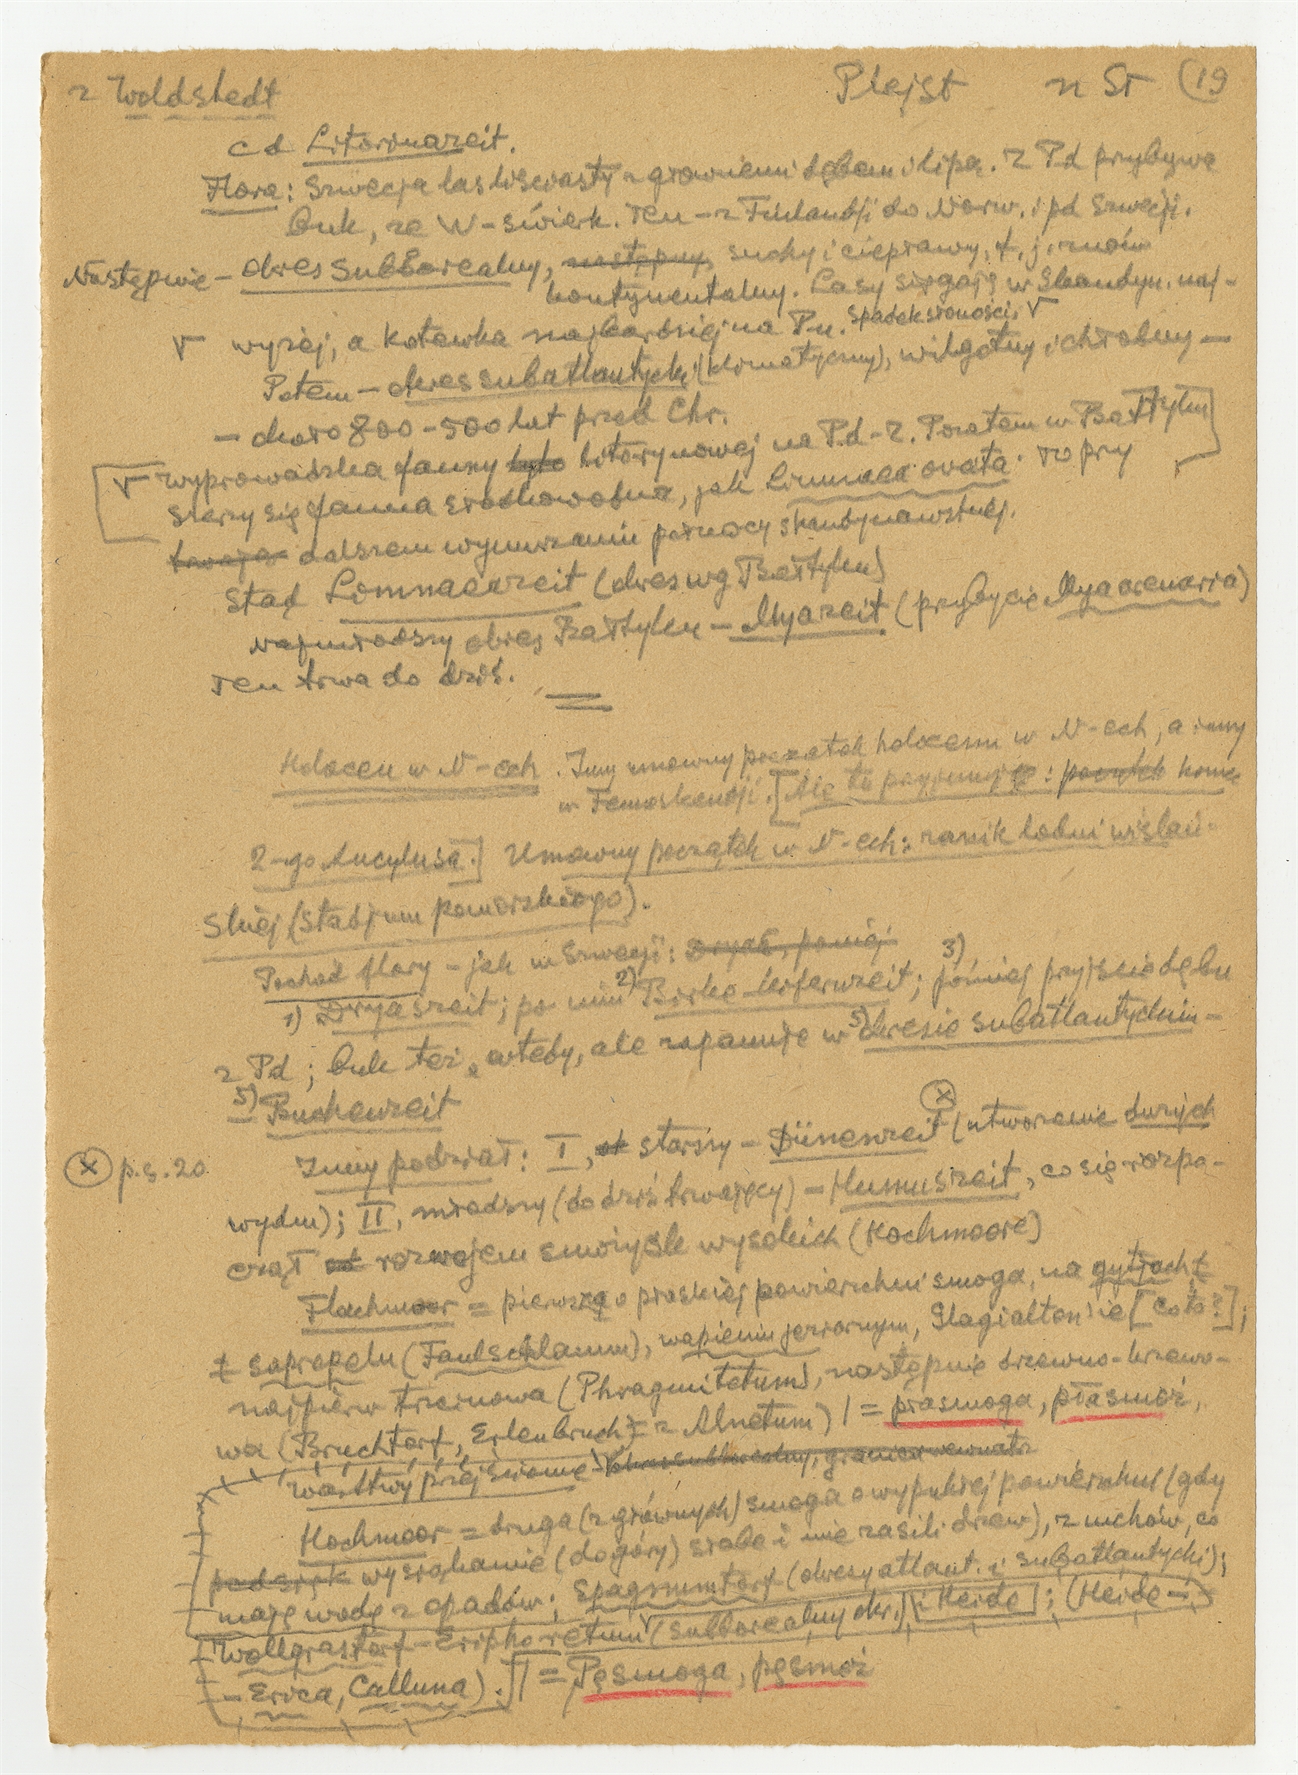 z Woldstedt Plejst n St (19
cd Litorinazeit.
Flora: Szwecja las liściasty z głównemi dębem i lipą. Z Pd przybywa
buk, ze W - świerk. Ten - z Finlandji do Norw. i pd Szwecji.
Następnie - okres subborealny, następny, suchy i cieprawy, t. j. znów
kontynentalny. Lasy sięgają w Skandyn. naj-
√ wyżej, a kotewka najbardziej na Pn. Spadek słoności. √
Potem - okres subatlantycki (klimatyczny), wilgotny i chłodny -
- około 800-500 lat przed Chr.
√ wyprowadzka fauny było litorynowej na Pd-Z. Pozatem w Bałtyku
szerzy się fauna słodkowodna, jak Limnaea ovata. To przy
trwają dalszem wynurzaniu północy skandynawskiej.
Stąd Limnaeazeit (okres wg Bałtyku)
Najmłodszy okres Bałtyku - Myazeit (przybycie Mya arenaria)
Ten trwa do dziś.
Holocen w N-ech. Inny umowny początek holocenu w N-ech, a inny
w Fennoskandji. [Ale tu przyjmuję: początek koniec
2-go Ancylusa.] Umowny początek w N-ech: zanik lodni wiślań-
skiej (stadjum pomorskiego).
Pochód flory - jak w Szwecji: Dryas, poniej
1) Dryaszeit; po nim 2) Birke-Kieferzeit; 3) później przyjście dębu
z Pd; buk też wtedy, ale zapanuje w 5) okresie subatlantyckim -
5) Buchenzeit
(x) p. s. 20. Inny podział: I, st starszy - Dünenzeit (x) (utworzenie dużych
wydm); II, młodszy (do dziś trwający) - Humuszeit, co się rozpo-
czął od rozwojem smożysk wysokich (Hochmoore)
Flachmoor = pierwsza o płaskiej powierzchni smoga, na gytjach,
z sapropelu (Faulschlamm), wapieniu jeziornym, Glagialtonie [co to?];
najpierw trzcinowa (Phragmitetum), następnie drzewno-krzewo-
wa (Bruchtorf, Erlenbruch z Alnetum) | = płasmoga, płasmoż,
warstwy przejściowe - okres subborealny, granica wewnątrz
Hochmoor = druga (z głównych) smoga o wypukłej powierzchni (gdy
podsiąk wysiąkanie (do góry) słabe i nie zasili drzew), z mchów, co
mają wodę z opadów; Spagnumtorf (okresy atlant. i subatlantycki);
Wollgrastorf - Eriphoretum (subborealny okr.) i Heide; (Heide -
- Erica, Calluna). | = Pęsmoga, pęsmoż